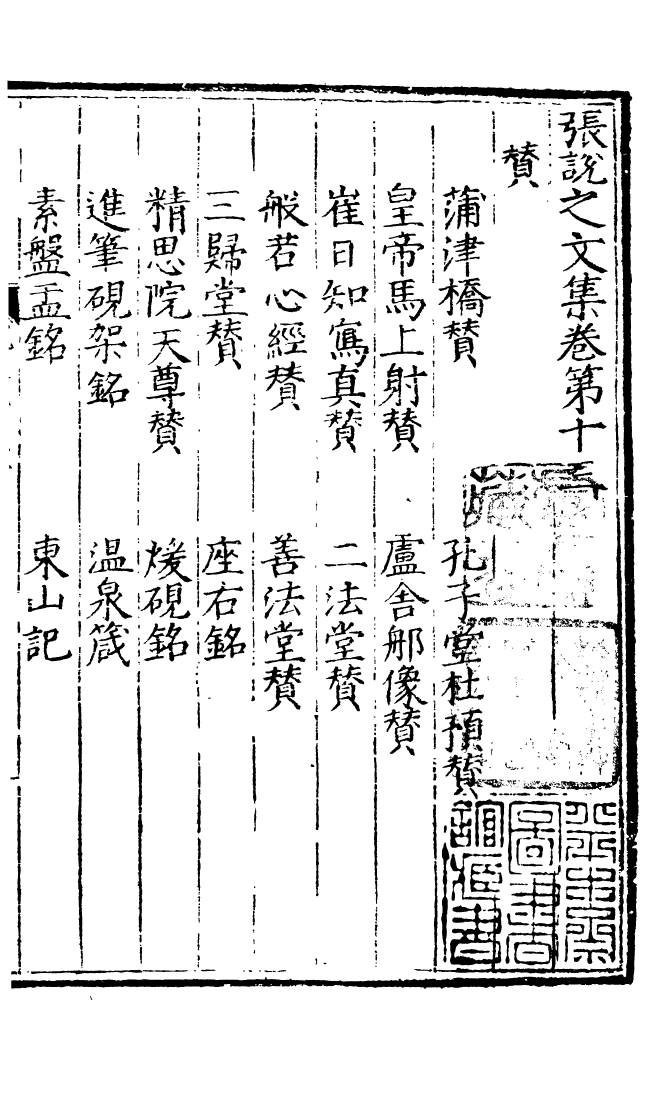 張說之文集卷第十三
贊
蒲津橋贊　孔子堂杜預贊
皇帝馬上射贊　盧舍那像贊
崔日知寫真贊　二法堂贊
般若心經贊　善法堂贊
三歸堂贊　座右銘
精思院天尊贊　煖硯銘
進筆硯架銘　温泉箴
素盤盂銘　東山記
北平木齋
圖書
館藏書